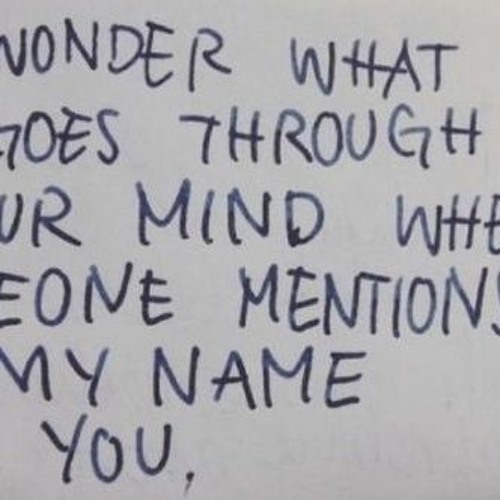 WONDER WHAT
GOES THROUGH
UR MIND WHE
EONE MENTIONS
MY NAME
YOU.